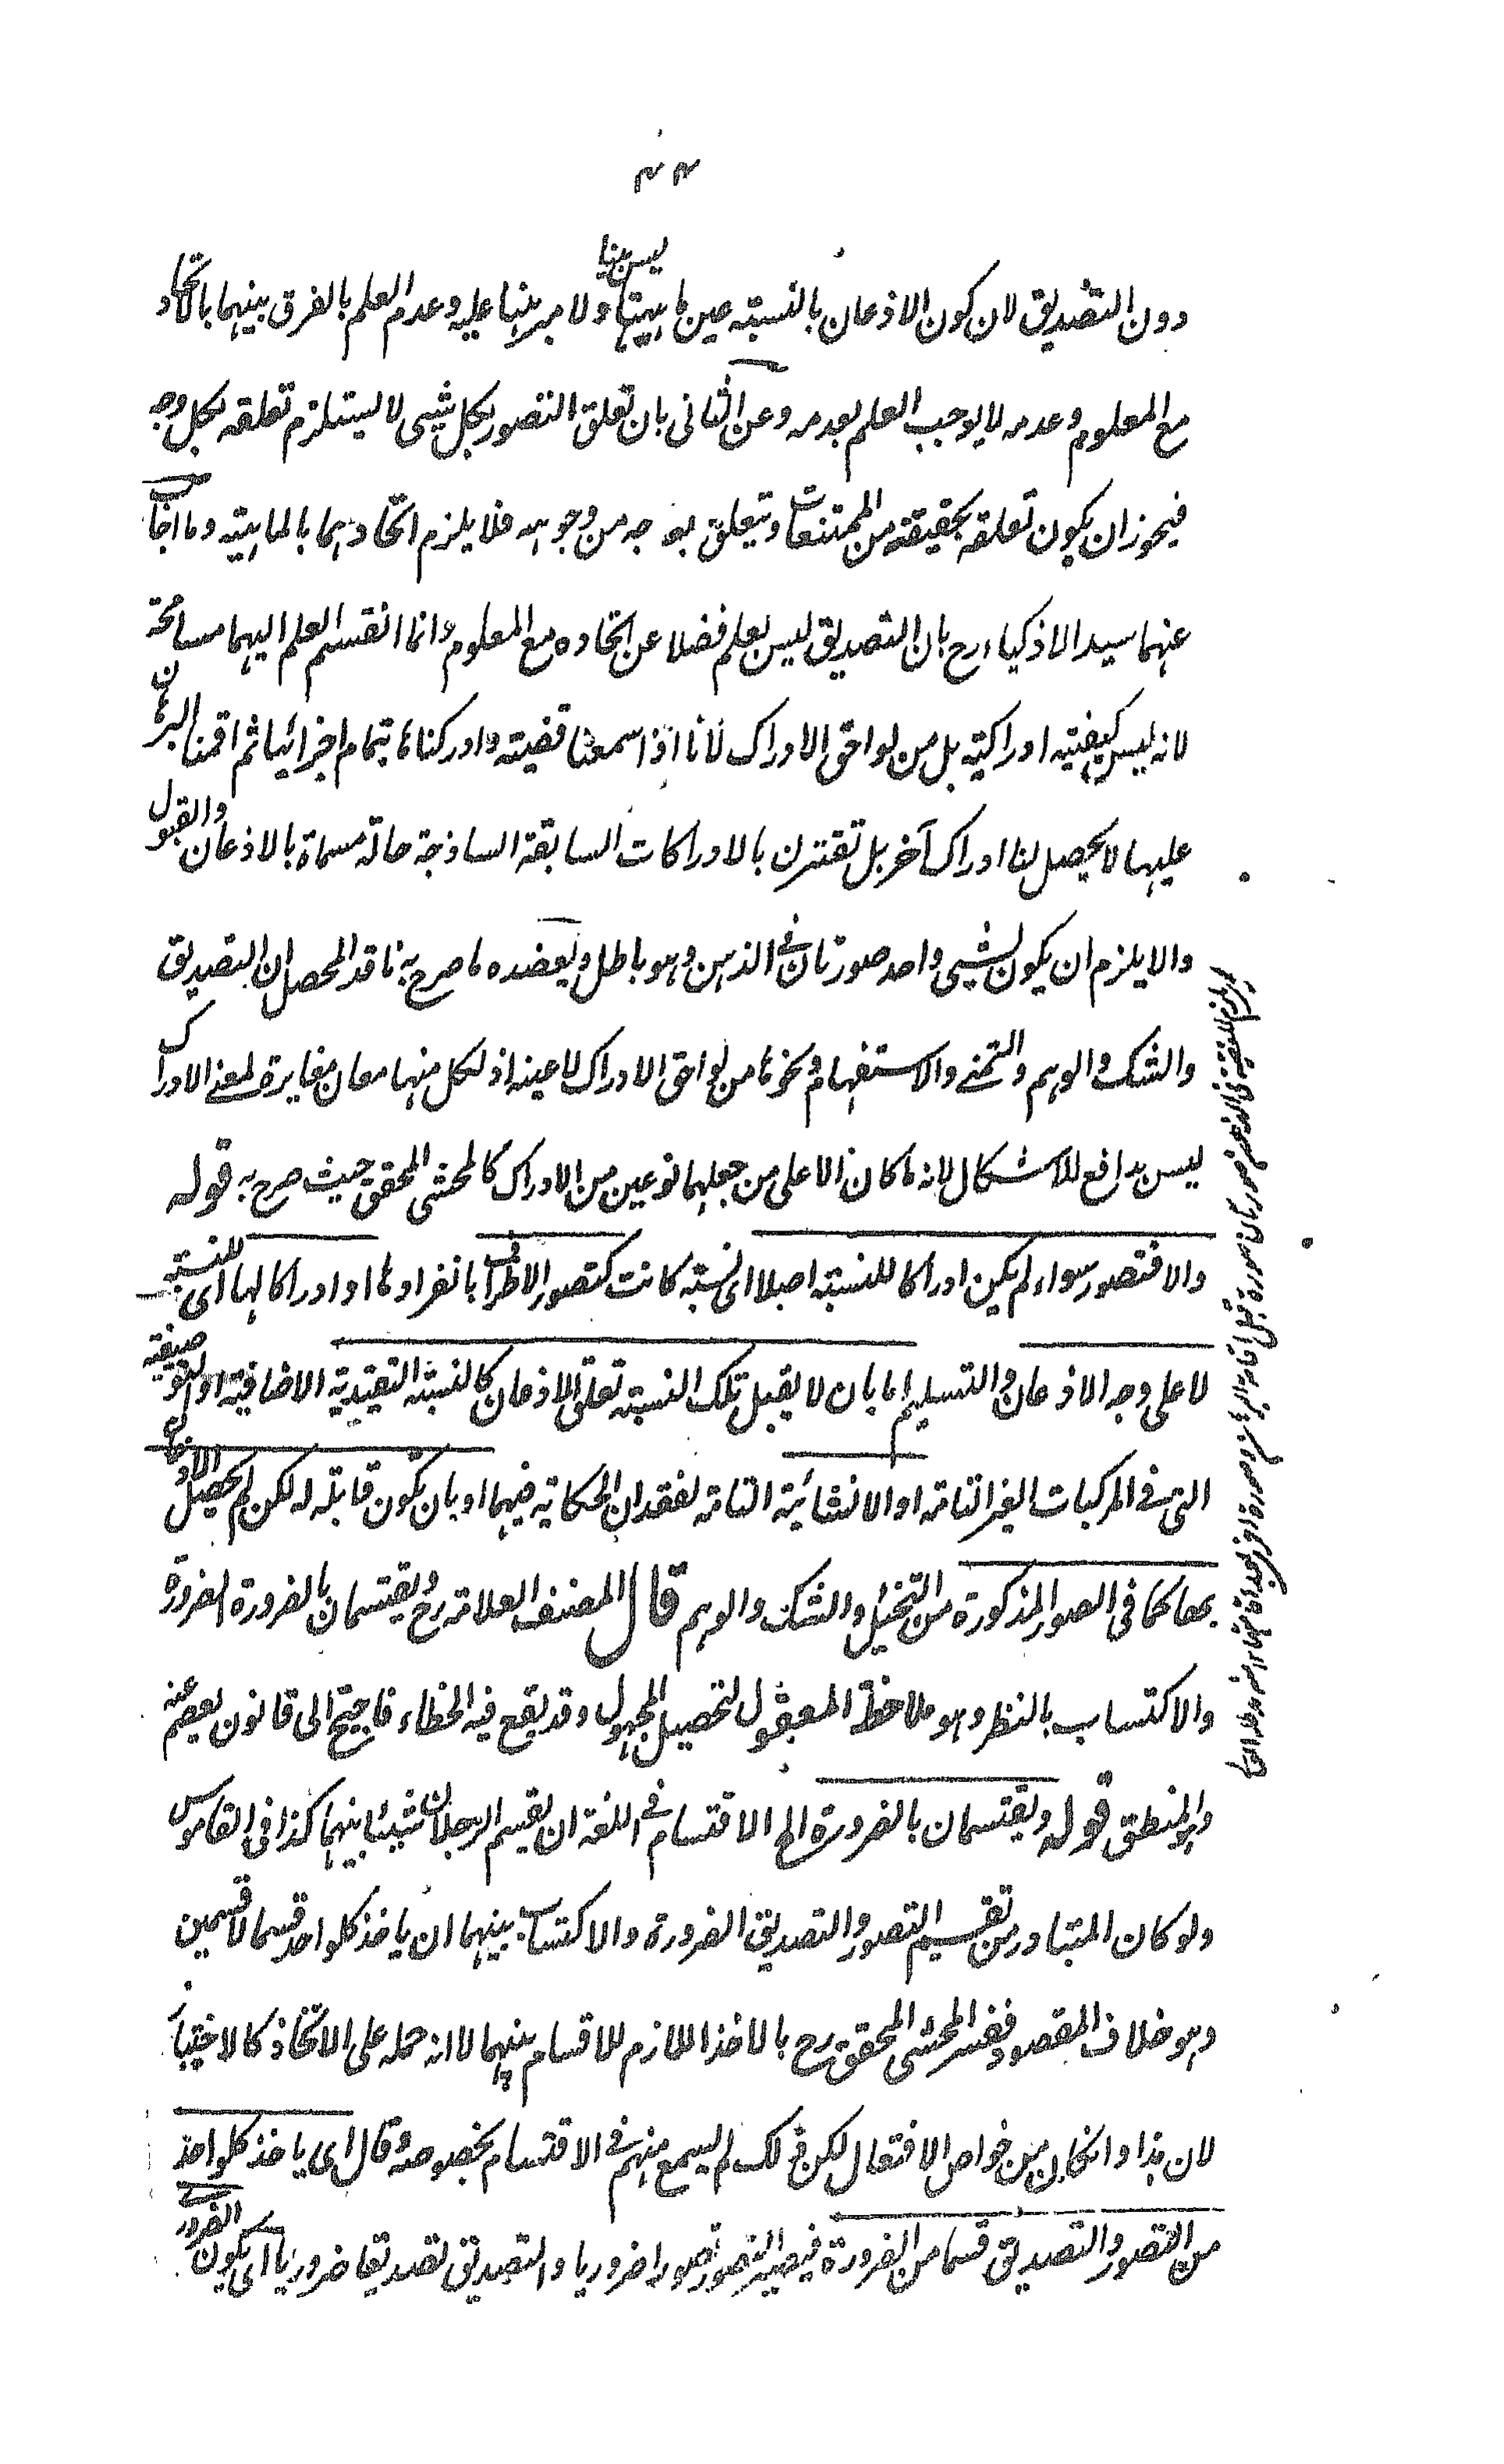 ۴۴
دون التصديق لان كون الاذعان بالنسبة عين ماهيتها ليس بينا ولا مبرهنا عليه وعدم العلم بالفرق بينهما بالاتحاد
مع المعلوم وعدمه لا يوجب العلم بعدمه وعن الثانى بان تعلق التصور بكل شيى لا يستلزم تعلقه بكل وجه
فيجوز ان يكون تعلقه بحقيقته من الممتنعات ويتعلق بوجه من وجوهه فلا يلزم اتحادهما بالماهية وما اجاب
عنهما سيد الاذكياء رح بان التصديق ليس بعلم فضلا عن اتحاده مع المعلوم وانما انقسم العلم اليهما مسامحة
لانه ليس كيفية ادراكية بل من لواحق الادراك لانا اذا سمعنا قضية وادركناها بتمام اجزائها ثم اقمنا البرهان
عليها لا يحصل لنا ادراك آخر بل تقترن بالادراكات السابقة الساذجة حالة مسماة بالاذعان والقبول
والا يلزم ان يكون لشيى واحد صورتان فى الذهن وهو باطل ويعضده ما صرح به ناقد المحصل ان التصديق
والشك والوهم والتمنى والاستفهام ونحوها من لواحق الادراك لا عينه اذ لكل منها معان مغايرة لمعنى الادراك
ليس بدافع للاشكال لانه ما كان الا على من جعلهما نوعين من الادراك كالمحشى المحقق حيث صرح به قوله
والا فتصور سواء لم يكن ادراكا للنسبة اصلا اى نسبة كانت كتصور الاطراف بانفرادها او ادراكا لها اى للنسبة
لا على وجه الاذعان والتسليم اما بان لا يقبل تلك النسبة تعلق الاذعان كالنسبة التقييدية الاضافية او التوصيفية
التى فى المركبات الغير التامة او الانشائية التامة لفقدان الحكاية فيهما او بان تكون قابلة له لكن لم يحصل الاذعان
بها كما فى الصور المذكورة من التخييل والشك والوهم قال المصنف العلامة رح ويقتسمان بالضرورة الضرورة
والاكتساب بالنظر وهو ملاحظة المعقول لتحصيل المجهول وقد يقع فيه الخطاء فاحتيج الى قانون يعصم عنه
وهو المنطق قوله ويقتسمان بالضرورة الخ الاقتسام فى اللغة ان يقسم الرجلان شيئا بينهما كذا فى القاموس
ولو كان المتبادر من تقسيم التصور والتصديق الضرورة والاكتساب بينهما ان ياخذ كلواحد قسما لا قسمين
وهو خلاف المقصود ففسر المحشى المحقق رح بالاخذ اللازم للاقسام بينهما لا انه حمله على الاتخاذ كالاختيار
لان هذا وانكان من خواص الافتعال لكن ذلك لم يسمع منهم فى الاقتسام بخصوصه وقال اى ياخذ كلواحد
من التصور والتصديق قسما من الضرورة فيصير التصور تصورا ضروريا والتصديق تصديقا ضروريا اى يكون الضرور